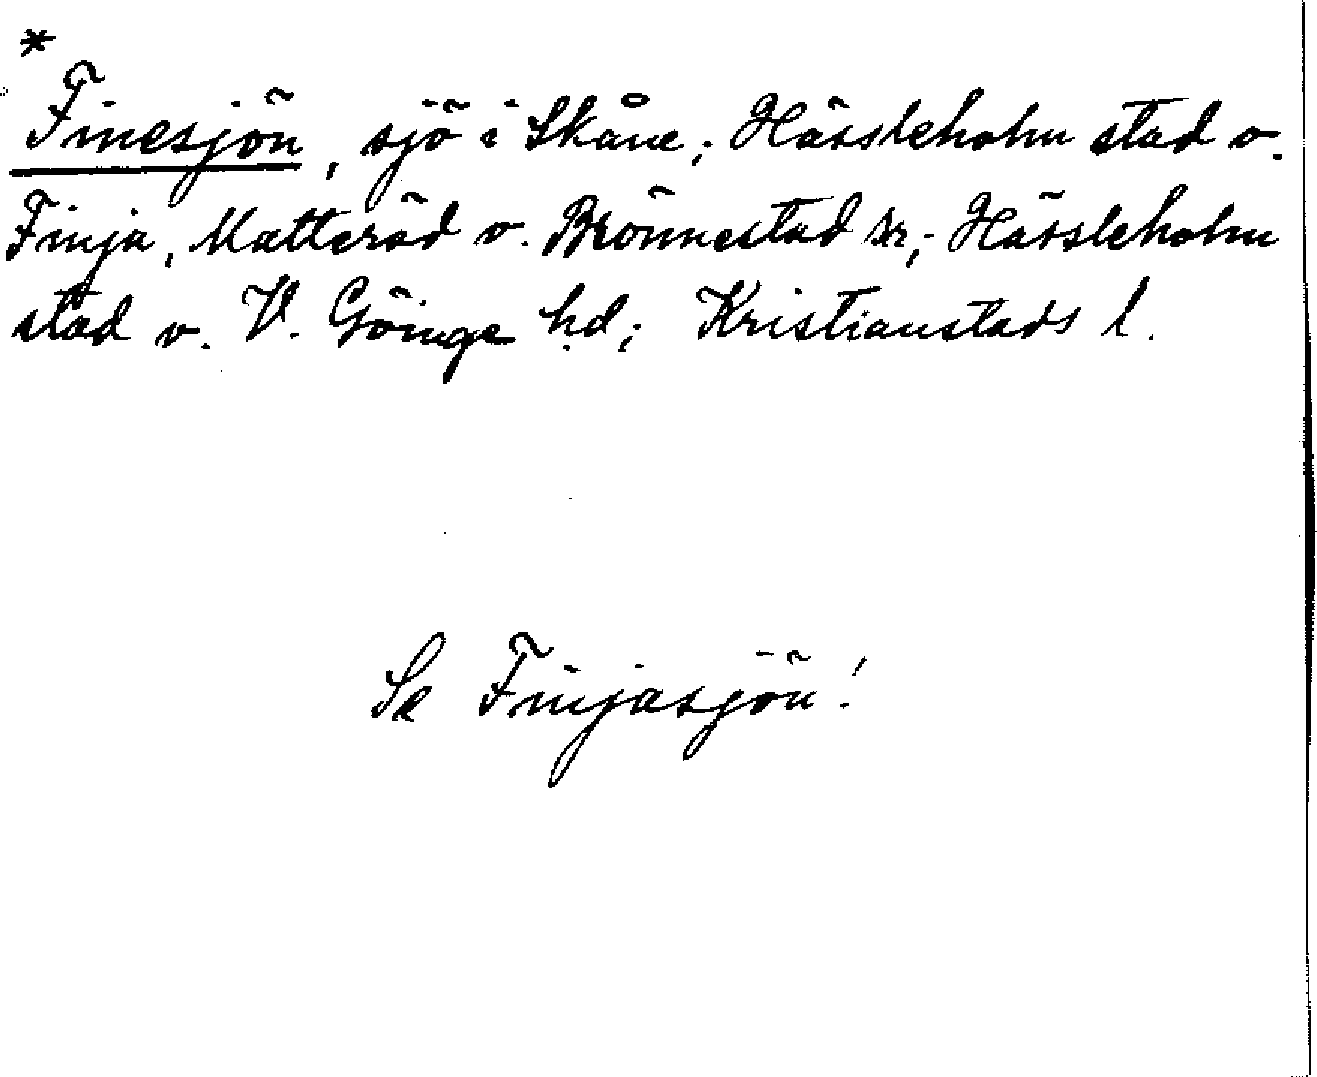 *
Finesjön, sjö i Skåne; Hässleholm stad o.
Finja, Matteröd o. Brönnestad sr; Hässleholm
stad o. V. Göinge hd; Kristianstads l.
Se Finjasjön!